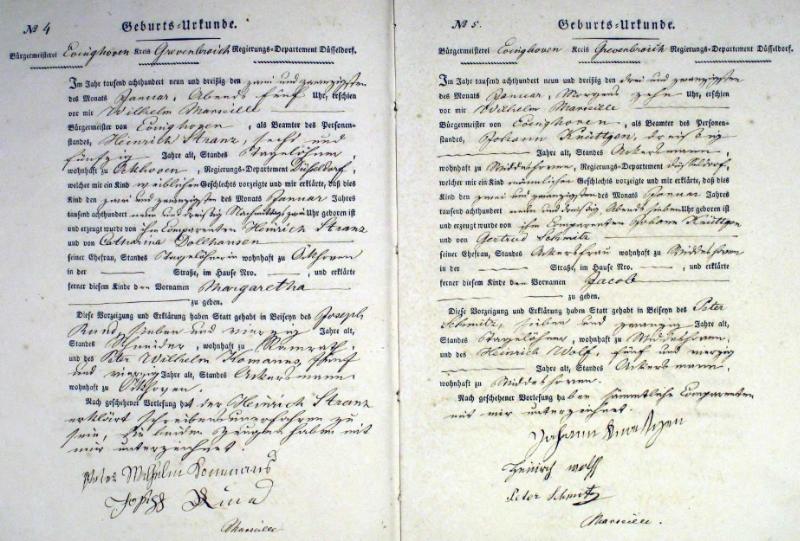 No 4
Geburts-Urkunde.
Bürgermeisterei Evinghoven Kreis Grevenbroich Regierungs-Departement Düsseldorf.
Im Jahr tausend achthundert neun und dreißig den zwei und zwanzigsten
des Monats Januar, Abends fünf Uhr, erschien
vor mir Wilhelm
Bürgermeister von, als Beamter des Personen-
standes, Heinrich Stranz, sechs und
fünfzig Jahre alt, Standes Tagelöhner,
wohnhaft zu, Regierungs-Departement Düsseldorf,
welcher mir ein Kind weiblichen Geschlechts vorzeigte und mir erklärte, daß dies
Kind den zwei und zwanzigsten des Monats Januar Jahres
tausend achthundert neun und dreißig Nachmittags zwei Uhr geboren ist
und erzeugt wurde von ihm Comparenten Heinrich Stranz
und von Catharina Dollhausen
seiner Ehefrau, Standes Tagelöhnerin wohnhaft zu
in der Straße, im Hause Nro., und erklärte
ferner diesem Kinde den Vornamen Margaretha
zu geben.
Diese Vorzeigung und Erklärung haben Statt gehabt in Beiseyn des Joseph
sieben und vierzig Jahre alt,
Standes Schneider, wohnhaft zu Ramrath,
und des Peter Wilhelm fünf
und vierzig Jahre alt, Standes Ackersmann
wohnhaft zu
Nach geschehener Vorlesung hat der Heinrich Stranz
erklärt Schreibens unerfahren zu
sein, die beiden Zeugen haben mit
mir unterzeichnet.
Peter Wilhelm
Joseph
No 5.
Geburts-Urkunde.
Bürgermeisterei Evinghoven Kreis Grevenbroich Regierungs-Departement Düsseldorf.
Im Jahr tausend achthundert neun und dreißig den drei und zwanzigsten
des Monats Januar, Morgens zehn Uhr, erschien
vor mir Wilhelm
Bürgermeister von Evinghoven, als Beamter des Personen-
standes, Johann dreißig
Jahre alt, Standes Ackersmann
wohnhaft zu, Regierungs-Departement Düsseldorf,
welcher mir ein Kind männlichen Geschlechts vorzeigte und mir erklärte, daß dies
Kind den zwei und zwanzigsten des Monats Januar Jahres
tausend achthundert neun und dreißig Abends sieben Uhr geboren ist
und erzeugt wurde von ihm Comparenten Johann
und von Gertrud Schmitz
seiner Ehefrau, Standes Ackersfrau wohnhaft zu
in der Straße, im Hause Nro., und erklärte
ferner diesem Kinde den Vornamen Jacob
zu geben.
Diese Vorzeigung und Erklärung haben Statt gehabt in Beiseyn des Peter
Schmitz, sieben und zwanzig Jahre alt,
Standes Tagelöhner, wohnhaft zu
und des Heinrich Wolf, fünf und vierzig
Jahre alt, Standes Ackersmann,
wohnhaft zu
Nach geschehener Vorlesung haben sämmtliche Comparenten
mit mir unterzeichnet.
Johann
Heinrich Wolff
Peter Schmitz